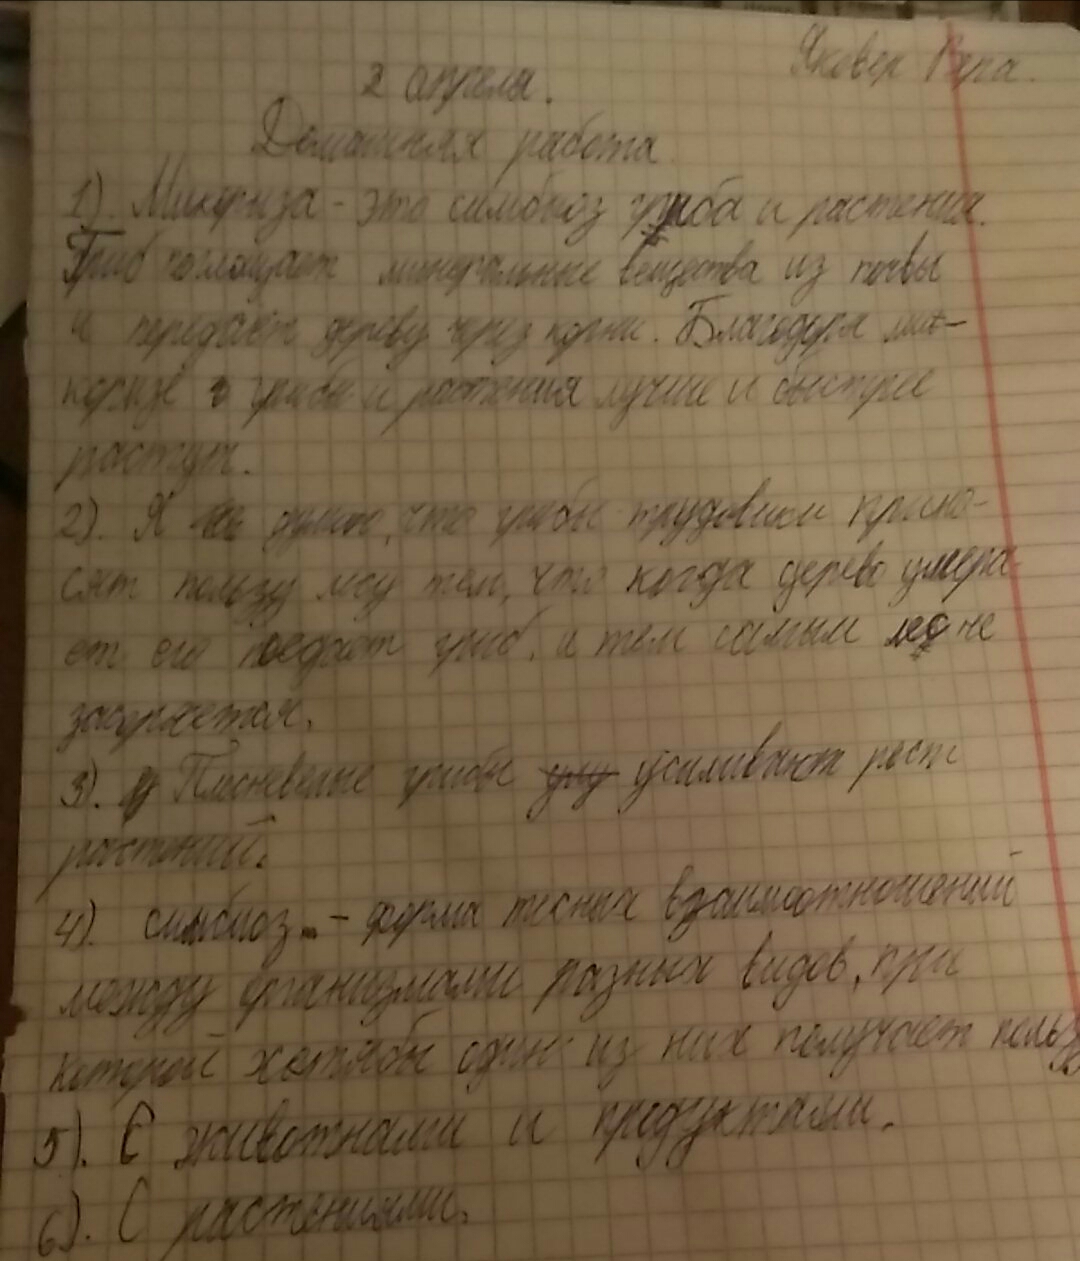 Яковер Вера.
2 апреля.
Домашняя работа
1). Микориза - это симбиоз гриба и растения.
Гриб поглощает минеральные вещества из почвы
и передаёт дереву через корни. Благодаря мик-
коризе грибы и растения лучше и быстрее
растут.
2). Я думаю, что грибы трудовики прино-
сят пользу лесу тем, что когда дерево умера-
ет его поедает гриб. и тем самым лес не
засоряется.
3). Плесневелые грибы усиливают рост
растений.
4). симбиоз - форма тесных взаимоотношений
между организмами разных видов, при
которой хотябы один из них получает пользу
5). С животнами и продуктами.
6). С растениями.